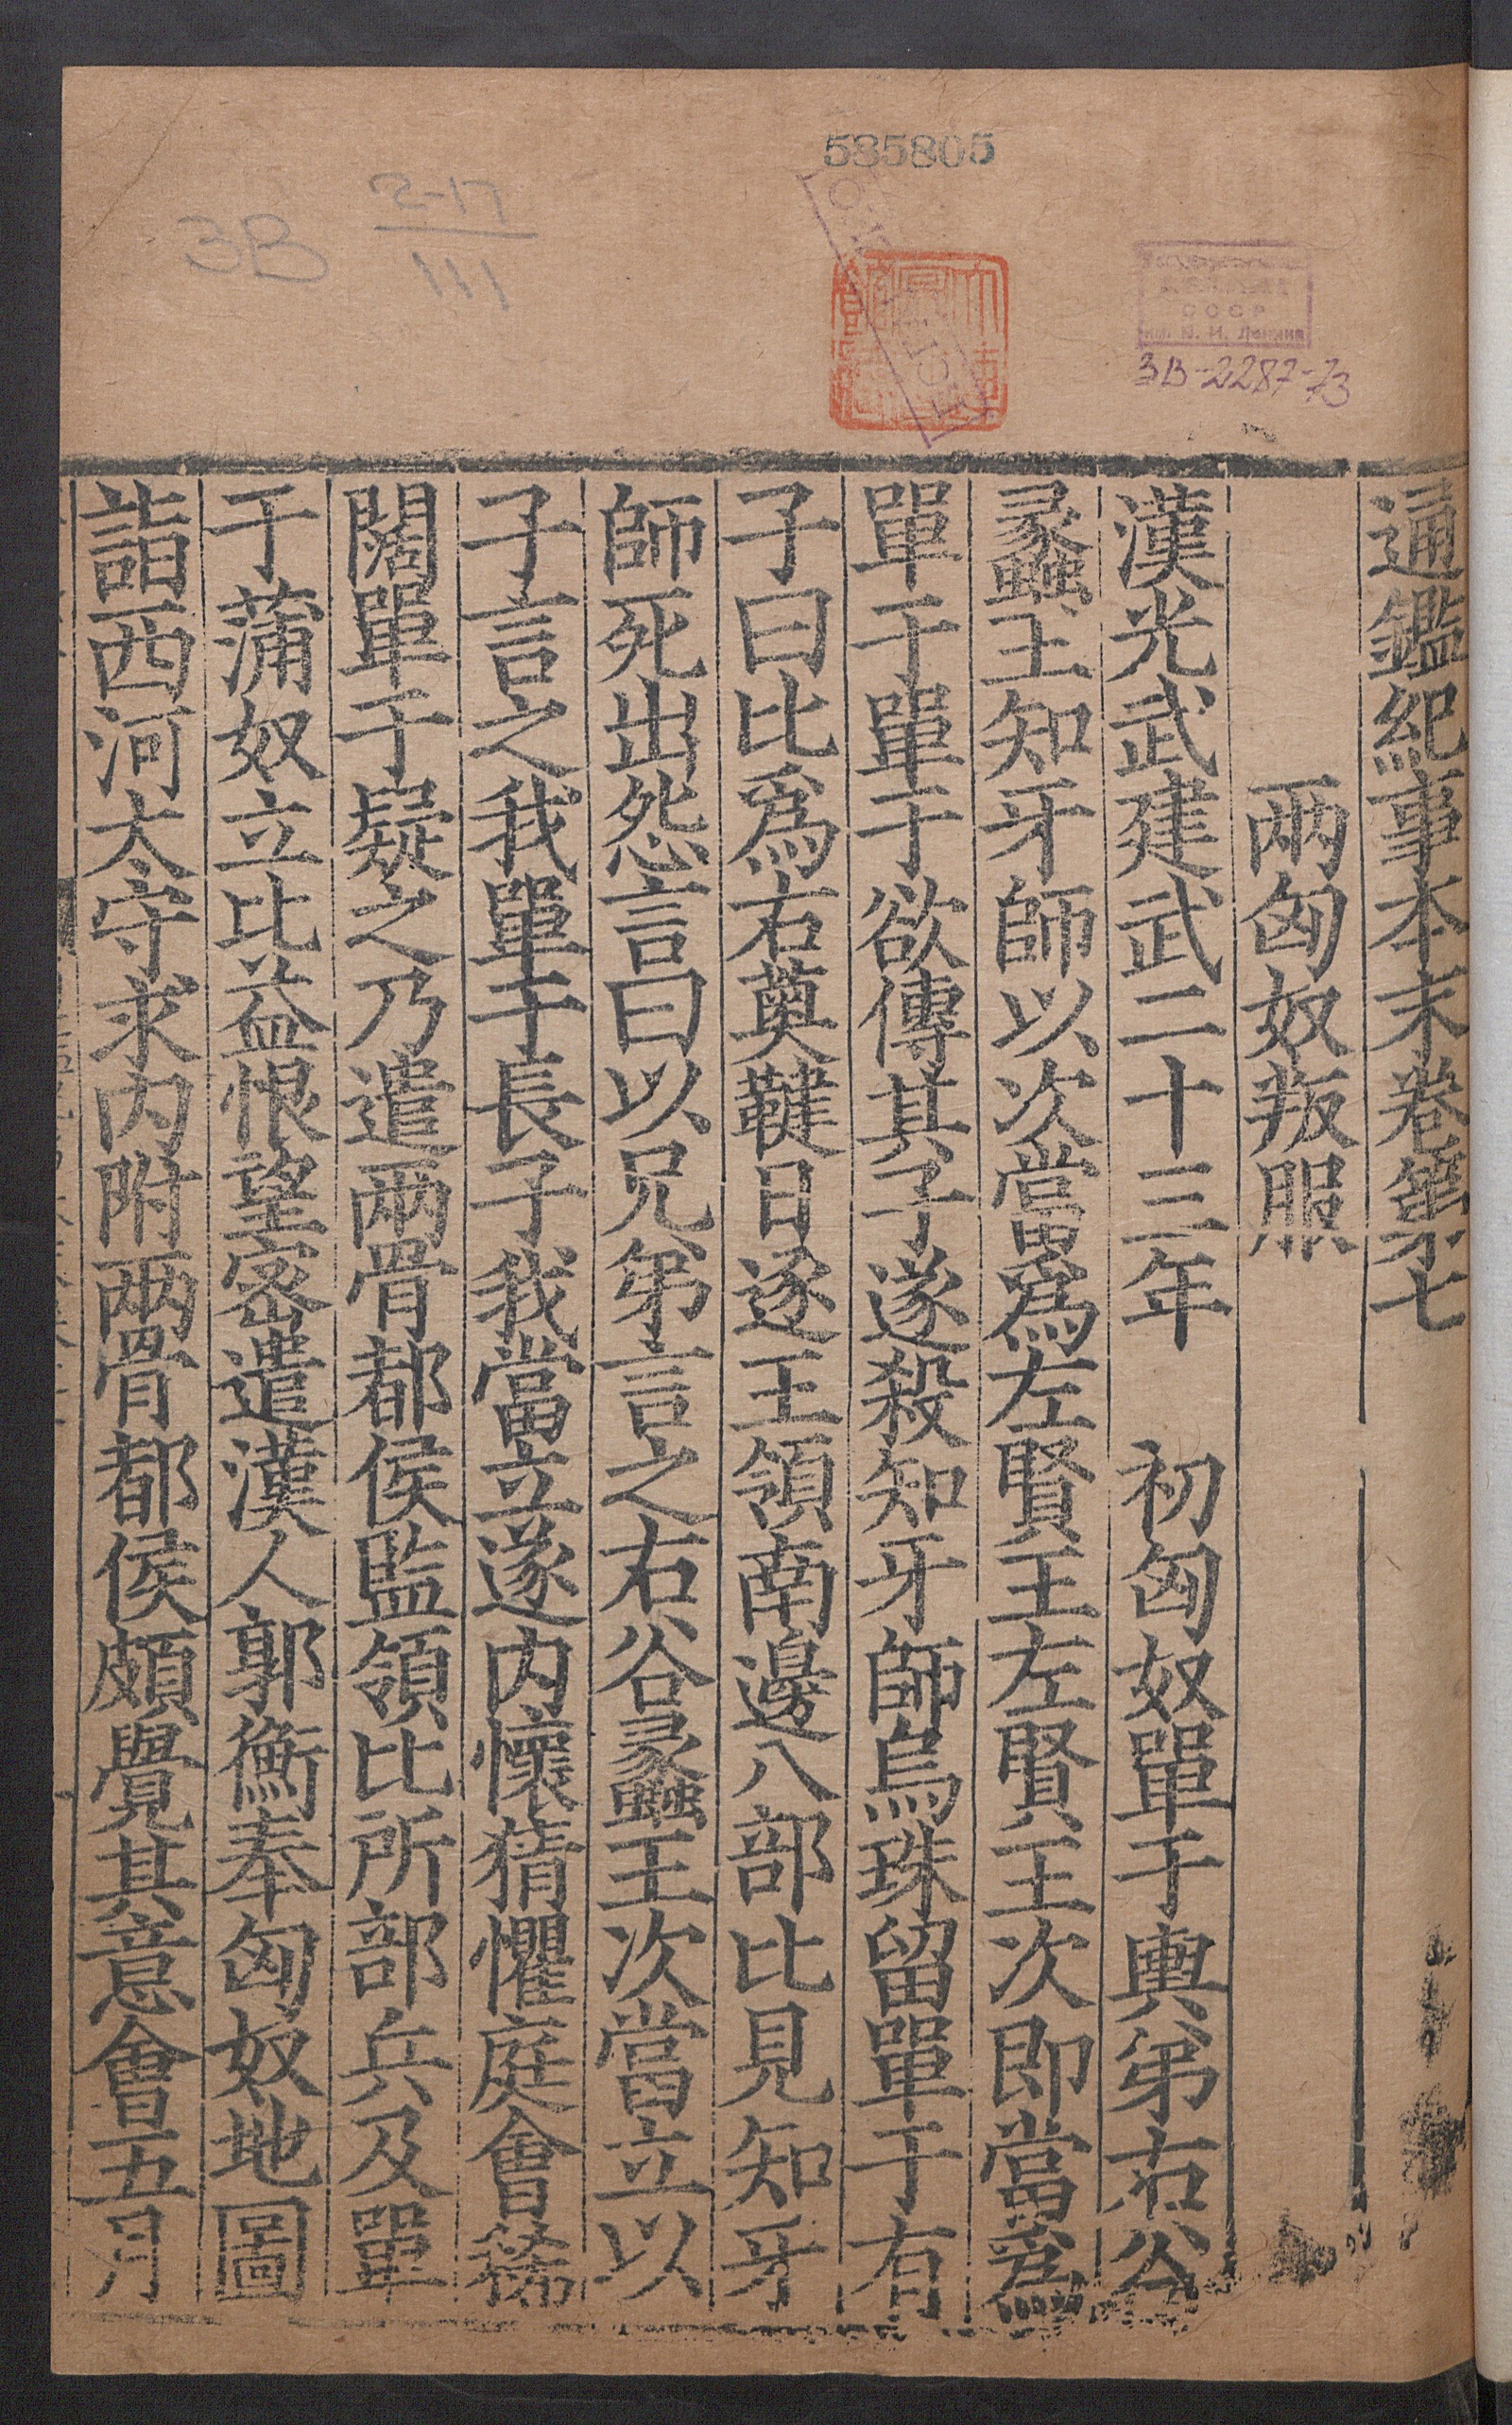 535805
3В 2-17
111
СССР
им. В. И. Ленина
3В-2287-73
通鑑紀事本末卷第七
两匈奴叛服
漢光武建武二十三年 初匈奴單于輿弟右谷
蠡王知牙師以次當爲左賢王左賢王次即當爲
單于單于欲傳其子遂殺知牙師烏珠留單于有
子曰比爲右薁鞬日逐王領南邊八部比見知牙
師死出怨言曰以兄弟言之右谷蠡王次當立以
子言之我單于長子我當立遂内懷猜懼庭會稀
闊單于疑之乃遣兩骨都侯監領比所部兵及單
于蒲奴立比益恨望密遣漢人郭衡奉匈奴地圖
詣西河太守求内附兩骨都侯頗覺其意會五月